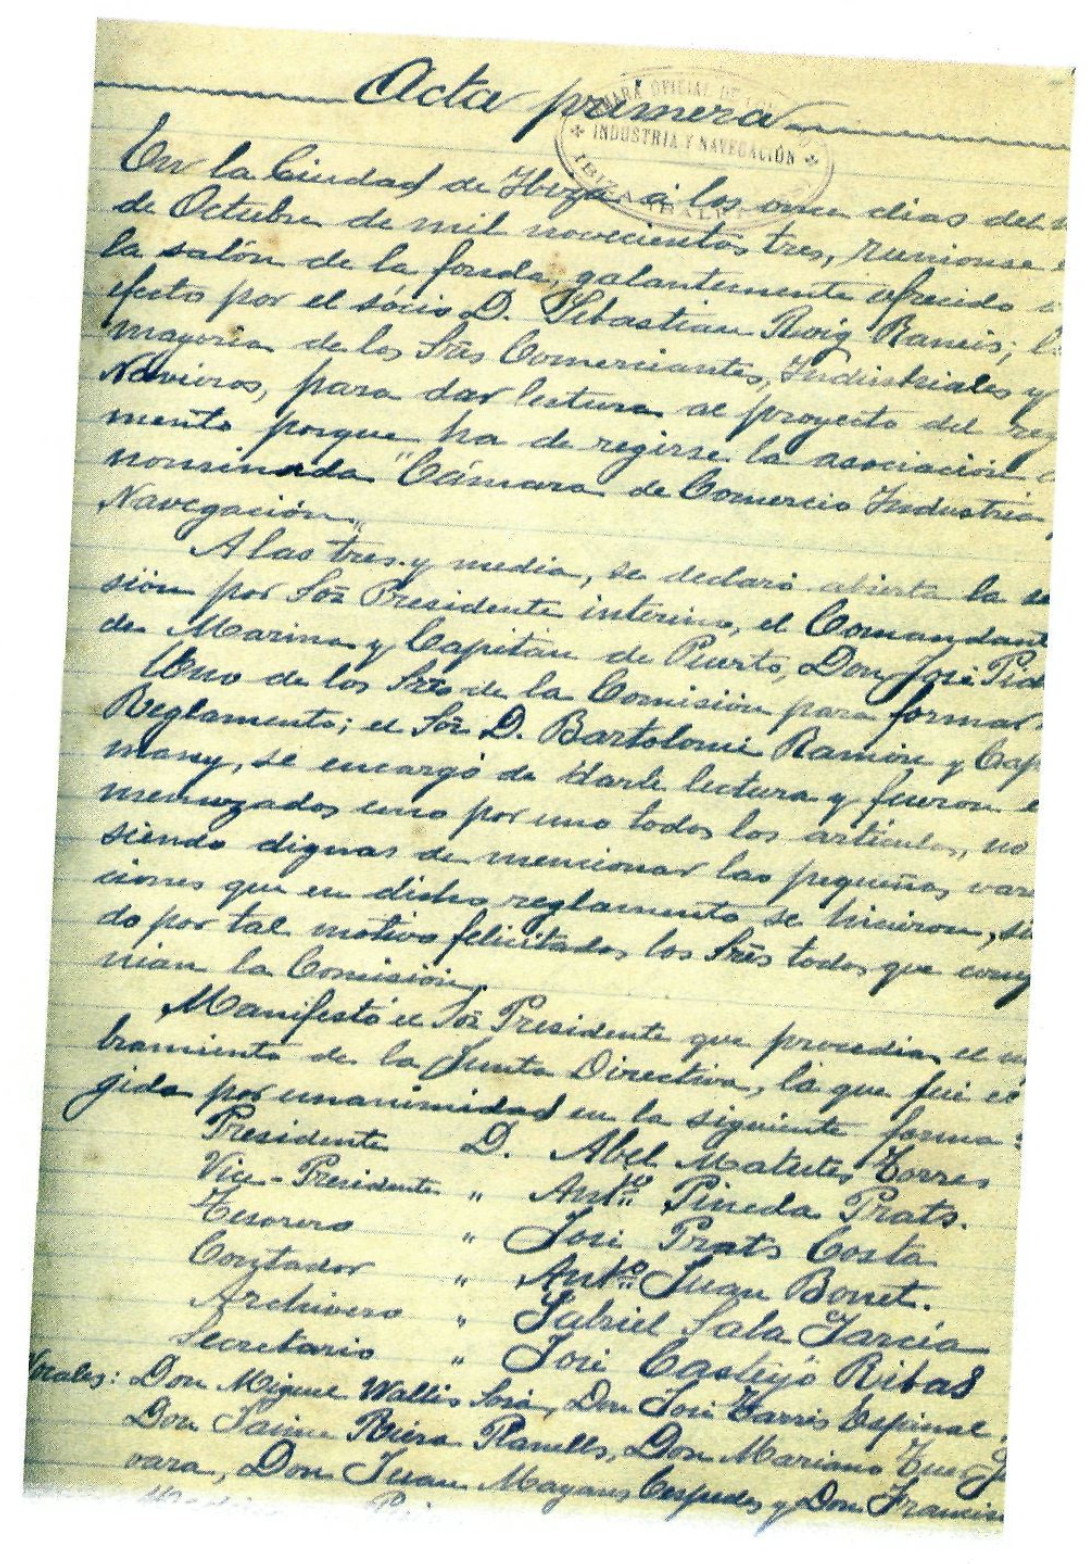 Acta primera
CÁMARA OFICIAL DE
INDUSTRIA Y NAVEGACIÓN
IBIZA (BALEARES)
En la Ciudad de Ibiza á los once dias del
de Octubre de mil novecientos tres, reunionse
la salón de la fonda, galantemente ofrecido
efecto por el sócio D. Sebastian Roig Ramis;
mayoria de los Sres Comerciantes, Industriales y
Navieros, para dar lectura al proyecto del reg
mento porque ha de regirse la asociación
nominada "Cámara de Comercio Industria
Navegación"
A las tres y media, se declaró abierta la se
sión por Sor Presidente interino, el Comandant
de Marina y Capitán de Puerto, Don José
Uno de los Sres de la Comisión para formar
Reglamento; el Sor D. Bartolomé Ramón y Cap
many, se encargó de darle lectura y fueron
menuzados uno por uno todos los artículos, no
siendo dignas de mencionar las pequeñas vari
ciones que en dicho reglamento se hicieron, si
do por tal motivo felicitados los Sres todos que comp
nian la Comisión.
Manifestó el Sor Presidente que procedia el
bramiento de la Junta Directiva, la que fué el
gida por unanimidad en la siguiente forma:
Presidente D. Abel Matutes Torres
Vice-Presidente " Antº Pineda Prats.
Tesorero " José Prats Costa
Contador " Antº Juan Bonet.
Archivero " Gabriel Sala García
Secretario " José Castelló Ribas
Vocales: Don Miguel Wallis Sorá, Don José Tarrés Espinal,
Don Jaime Riera Planells, Don Mariano Tuer
vara, Don Juan Mayans Cespedes y Don Francis